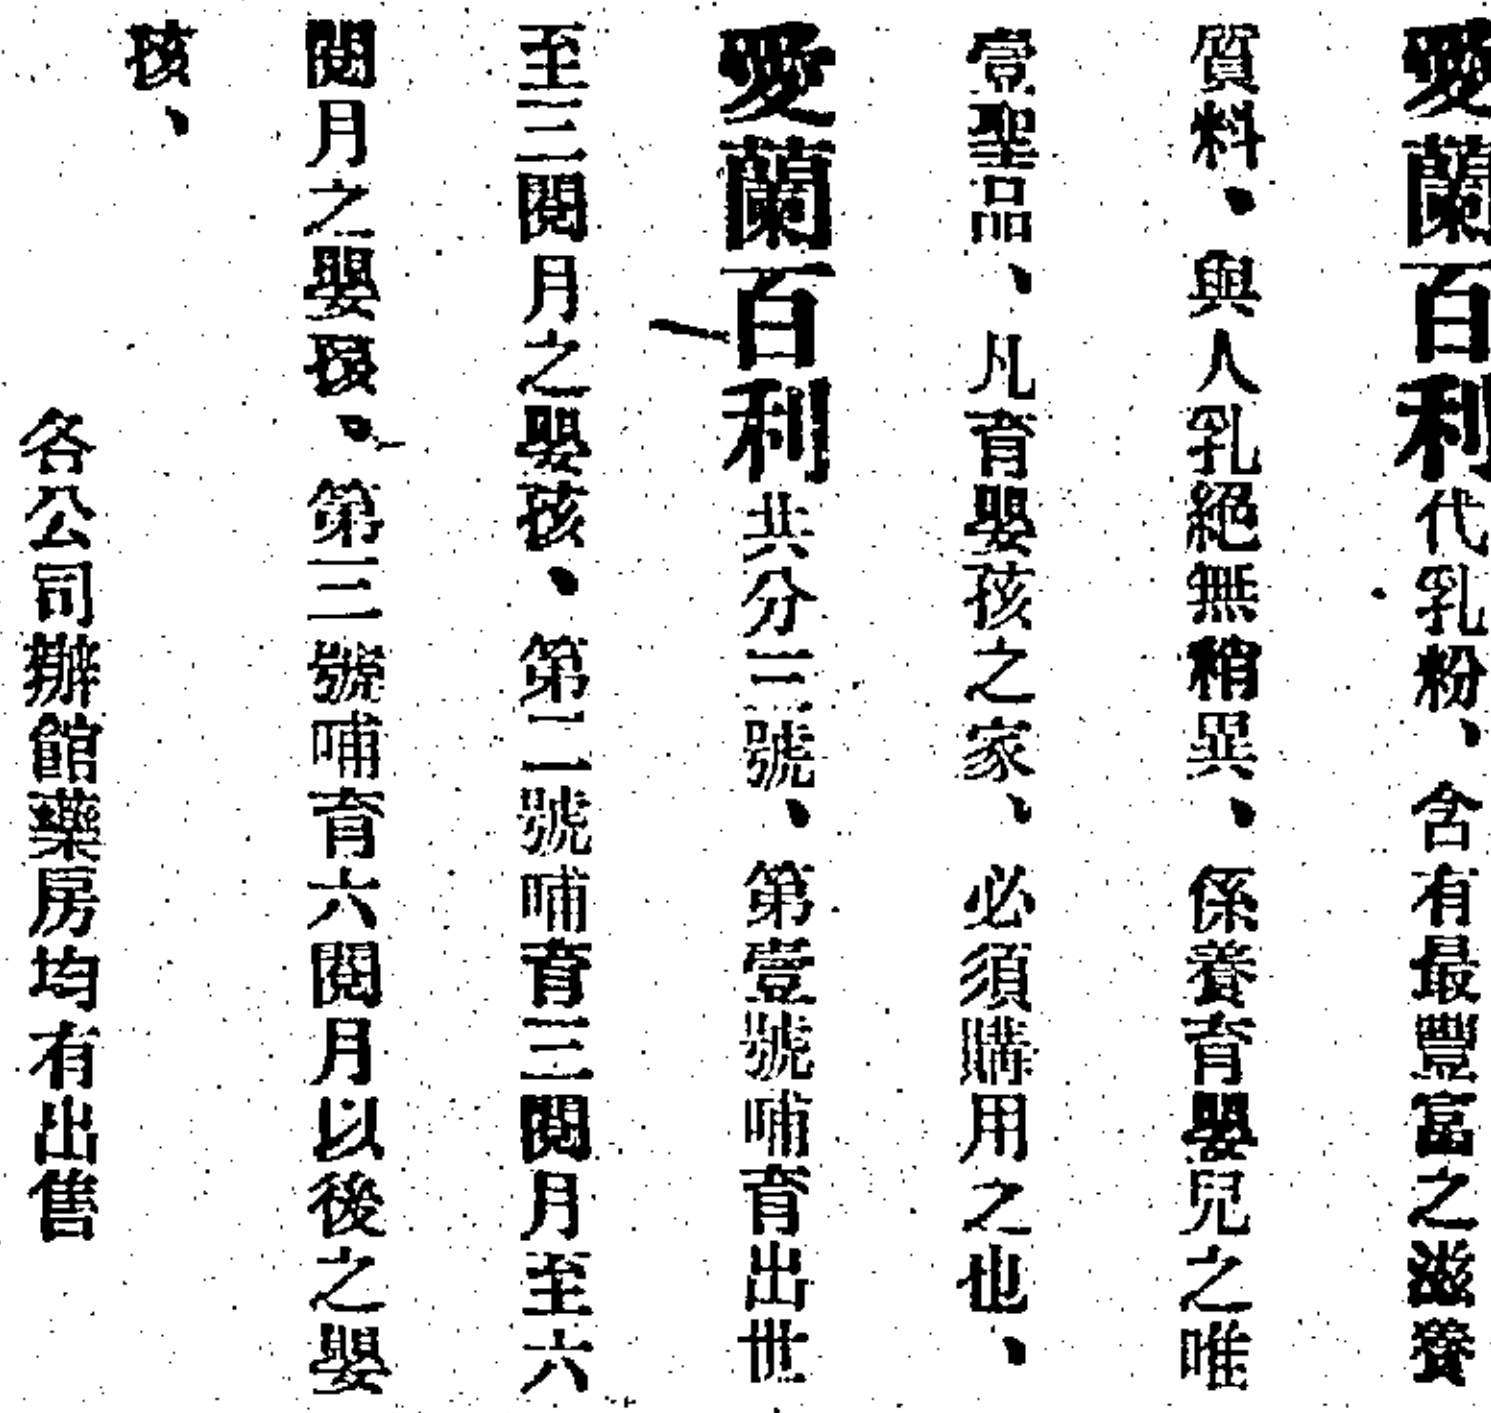 愛蘭百利代乳粉、含有最豐富之滋養
質料、與人乳絕無稍異、係養育嬰兒之唯
壹聖品、凡育嬰孩之家、必須購用之也、
愛蘭百利共分三號、第壹號哺育出世
至三閱月之嬰孩、第二號哺育三閱月至六
閱月之嬰孩、第三號哺育六閱月以後之嬰
孩、
各公司辦館藥房均有出售